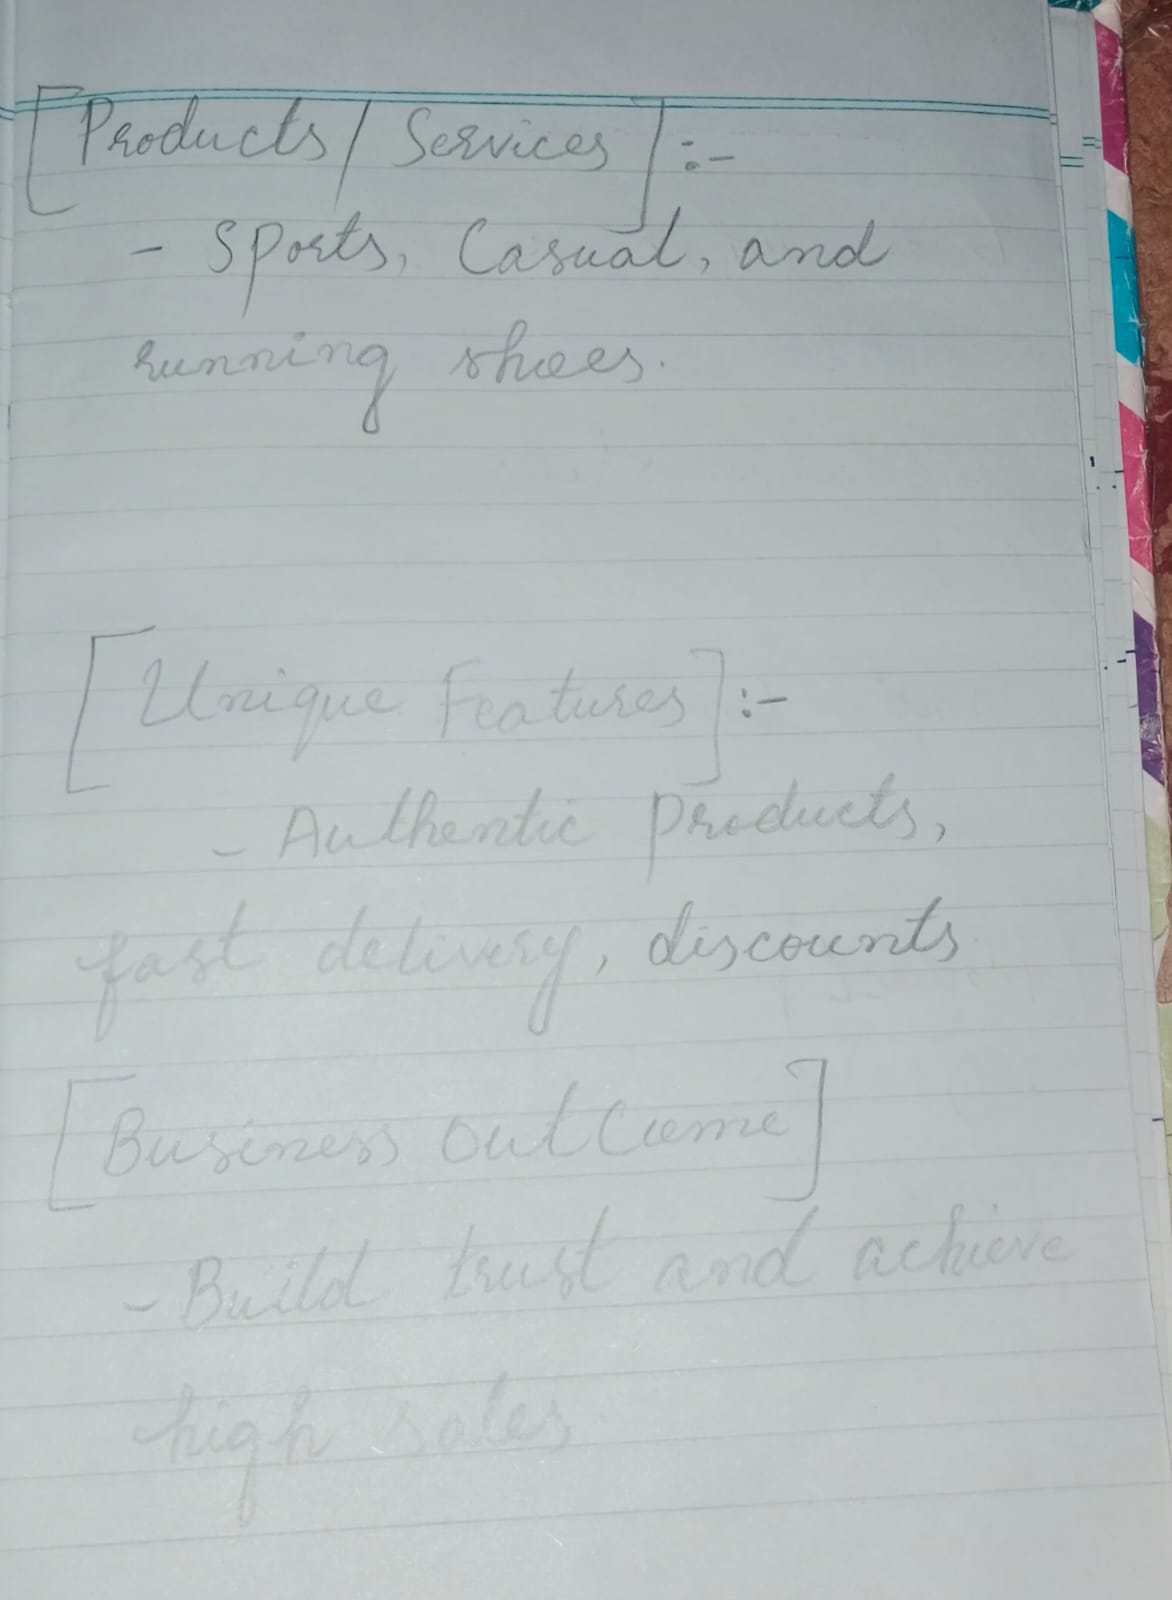 [Products/Services]:-
- Sports, Casual, and
running shoes.
[Unique Features]:-
- Authentic products,
fast delivery, discounts
[Business outCome]
- Build trust and achieve
high sales.